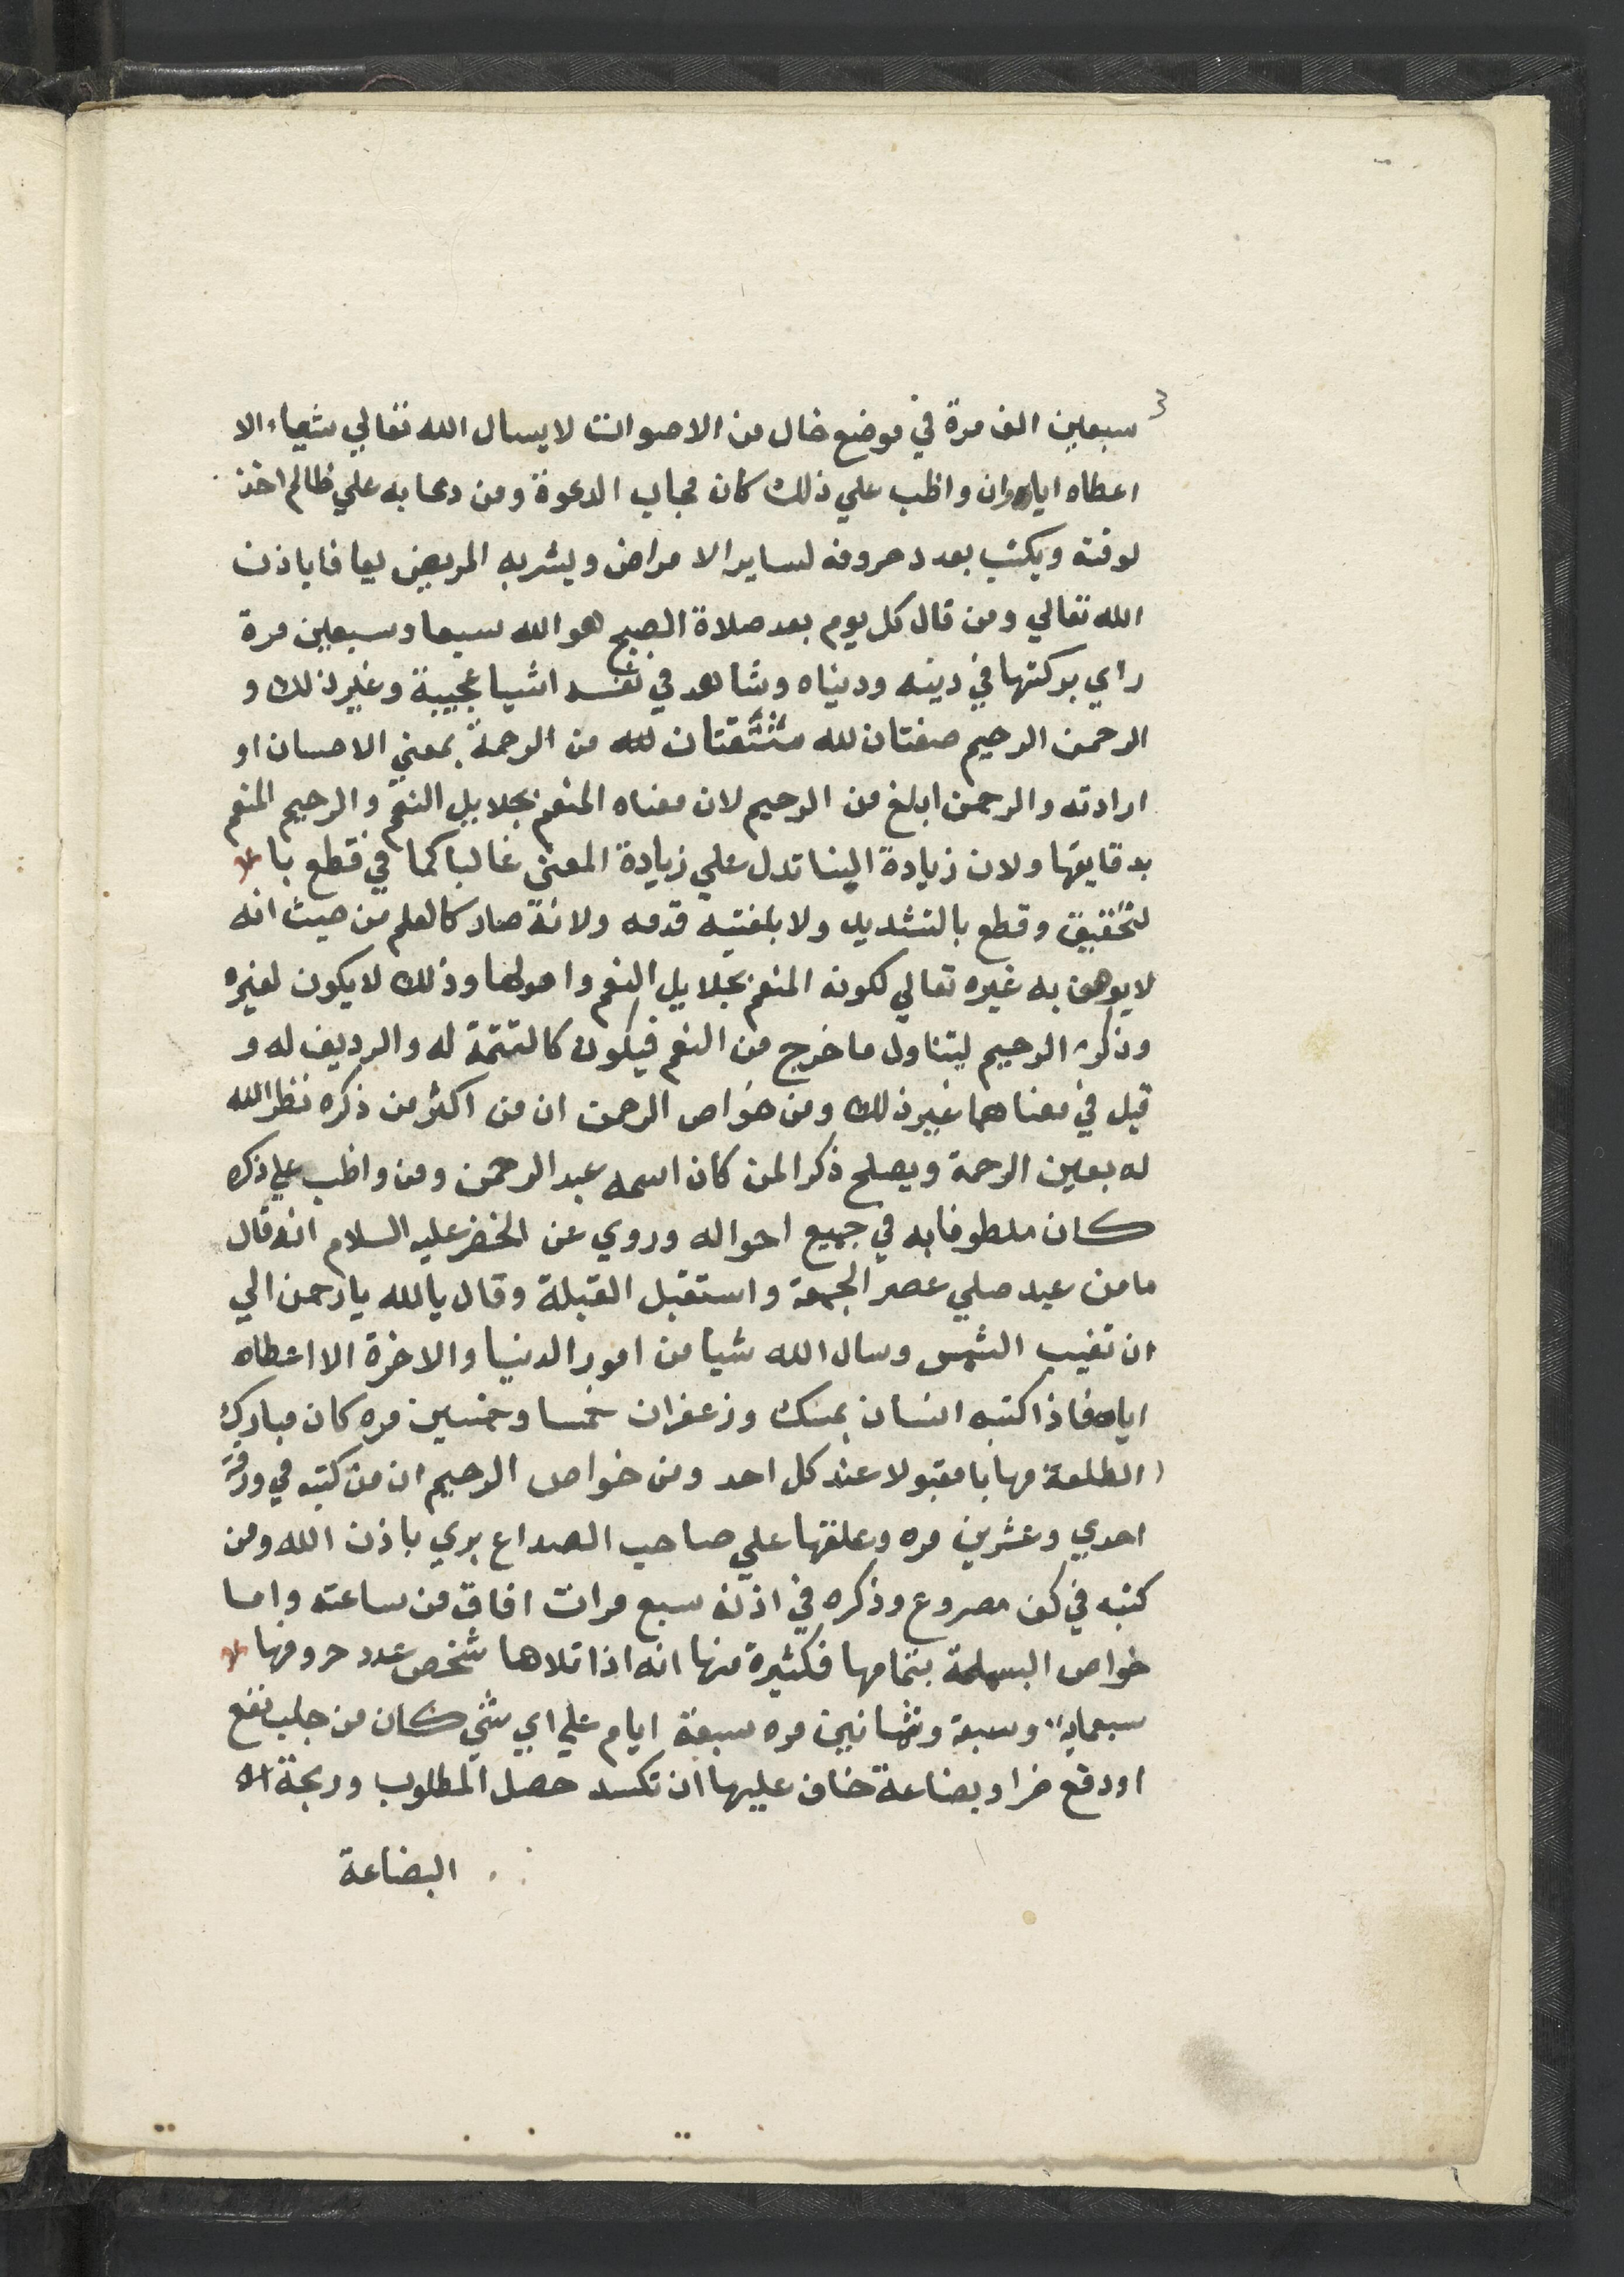 سبعين الف مرة في موضع خال من الاصوات لا يسال الله تعالي شياء الا
اعطاه اياه وان واظب علي ذلك كان مجاب الدعوة ومن دعا به علي ظالم اخذ
لوقته ويكتب بعدد حروفه لساير الامراض ويشربه المريض يعافا باذن
الله تعالي ومن قال كل يوم بعد صلاة الصبح هو الله سبعا وسبعين مرة
راي بركتها في دينه ودنياه وشاهد في نفسه اشيا عجيبة وغير ذلك و
الرحمن الرحيم صفتان لله مشتقتان لله من الرحمة بمعني الاحسان او
ارادته والرحمن ابلغ من الرحيم لان معناه المنعم بجلايل النعم والرحيم المنعم
بدقايقها ولان زيادة البنا تدل علي زيادة المعني غالبا كما في قطع با
لتخفيق وقطع بالتشديد ولابلغتيه قدمه ولانه صار كالعلم من حيث انه
لا يوصف به غيره تعالي لكونه المنعم بجلايل النعم واصولها وذلك لا يكون لغيره
وذكر الرحيم ليتناول ما خرج من النعم فيكون كالتتمة له والرديف له و
قيل في معناهما غير ذلك ومن خواص الرحمن ان من اكثر من ذكره نظر الله
له بعين الرحمة ويصلح ذكرا لمن كان اسمه عبد الرحمن ومن واظب علي ذكره
كان ملطوفا به في جميع احواله وروي عن الخضر عليه السلام انه قال
ما من عبد صلي عصر الجمعة واستقبل القبلة وقال يالله يارحمن الي
ان تغيب الشمس وسال الله شيا من امور الدنيا والاخرة الا اعطاه
اياه فاذا كتبه انسان بمسك وزعفران خمسا وخمسين مره كان مبارك
الطلعة مهابا مقبولا عند كل احد ومن خواص الرحيم ان من كتبه في ورقة
احدي وعشرين مره وعلقها علي صاحب الصداع بري باذن الله ومن
كتبه في كف مصروع وذكره في اذنه سبع مرات افاق من ساعته واما
خواص البسملة بتمامها فكثيرة منها انه اذا تلاها شخص عدد حروفها
سبعماية وسبعة وثمانين مره سبعة ايام علي اي شي كان من جلب نفع
او دفع ضر او بضاعة خاف عليها ان تكسد حصل المطلوب وربحة
البضاعة